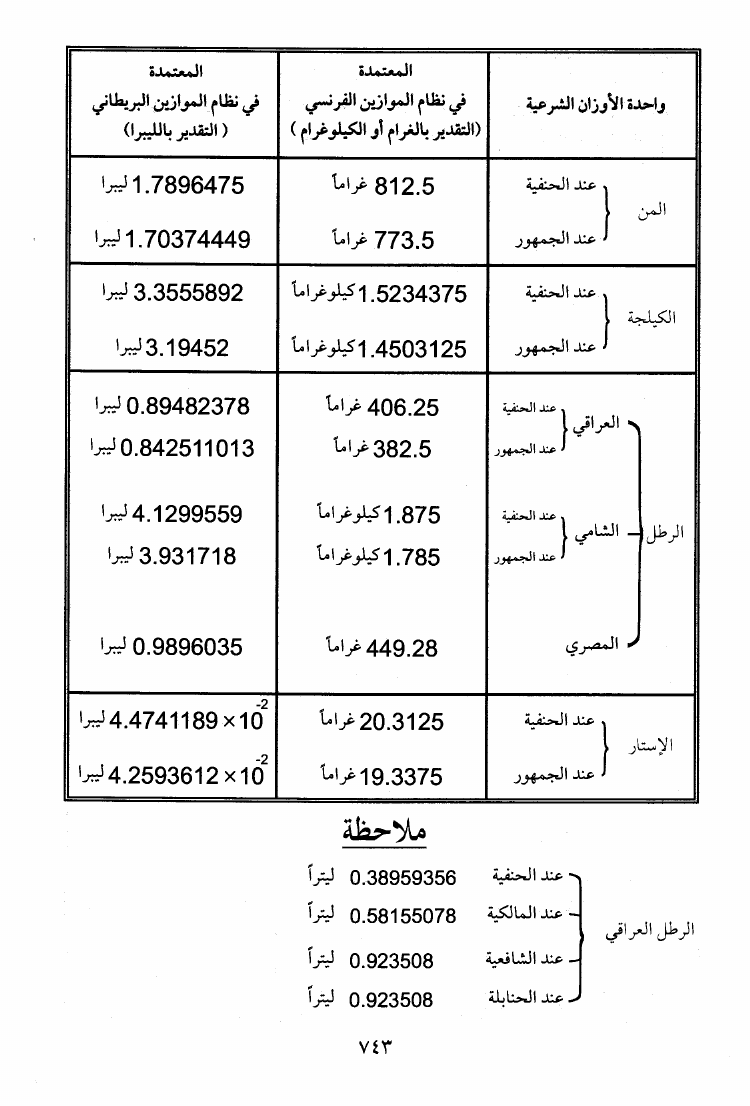 واحدة الأوزان الشرعية | المعتمدة في نظام الموازين الفرنسي (التقدير بالغرام أو الكيلوغرام) | المعتمدة في نظام الموازين البريطاني (التقدير بالليبرا)
المن
عند الحنفية | 812.5 غراماً | 1.7896475 ليبرا
عند الجمهور | 773.5 غراماً | 1.70374449 ليبرا
الكيلجة
عند الحنفية | 1.5234375 كيلوغراماً | 3.3555892 ليبرا
عند الجمهور | 1.4503125 كيلوغراماً | 3.19452 ليبرا
الرطل
العراقي
عند الحنفية | 406.25 غراماً | 0.89482378 ليبرا
عند الجمهور | 382.5 غراماً | 0.842511013 ليبرا
الشامي
عند الحنفية | 1.875 كيلوغراماً | 4.1299559 ليبرا
عند الجمهور | 1.785 كيلوغراماً | 3.931718 ليبرا
المصري | 449.28 غراماً | 0.9896035 ليبرا
الإستار
عند الحنفية | 20.3125 غراماً | 4.4741189 × 10⁻² ليبرا
عند الجمهور | 19.3375 غراماً | 4.2593612 × 10⁻² ليبرا
ملاحظة
الرطل العراقي
عند الحنفية 0.38959356 ليتراً
عند المالكية 0.58155078 ليتراً
عند الشافعية 0.923508 ليتراً
عند الحنابلة 0.923508 ليتراً
٧٤٣